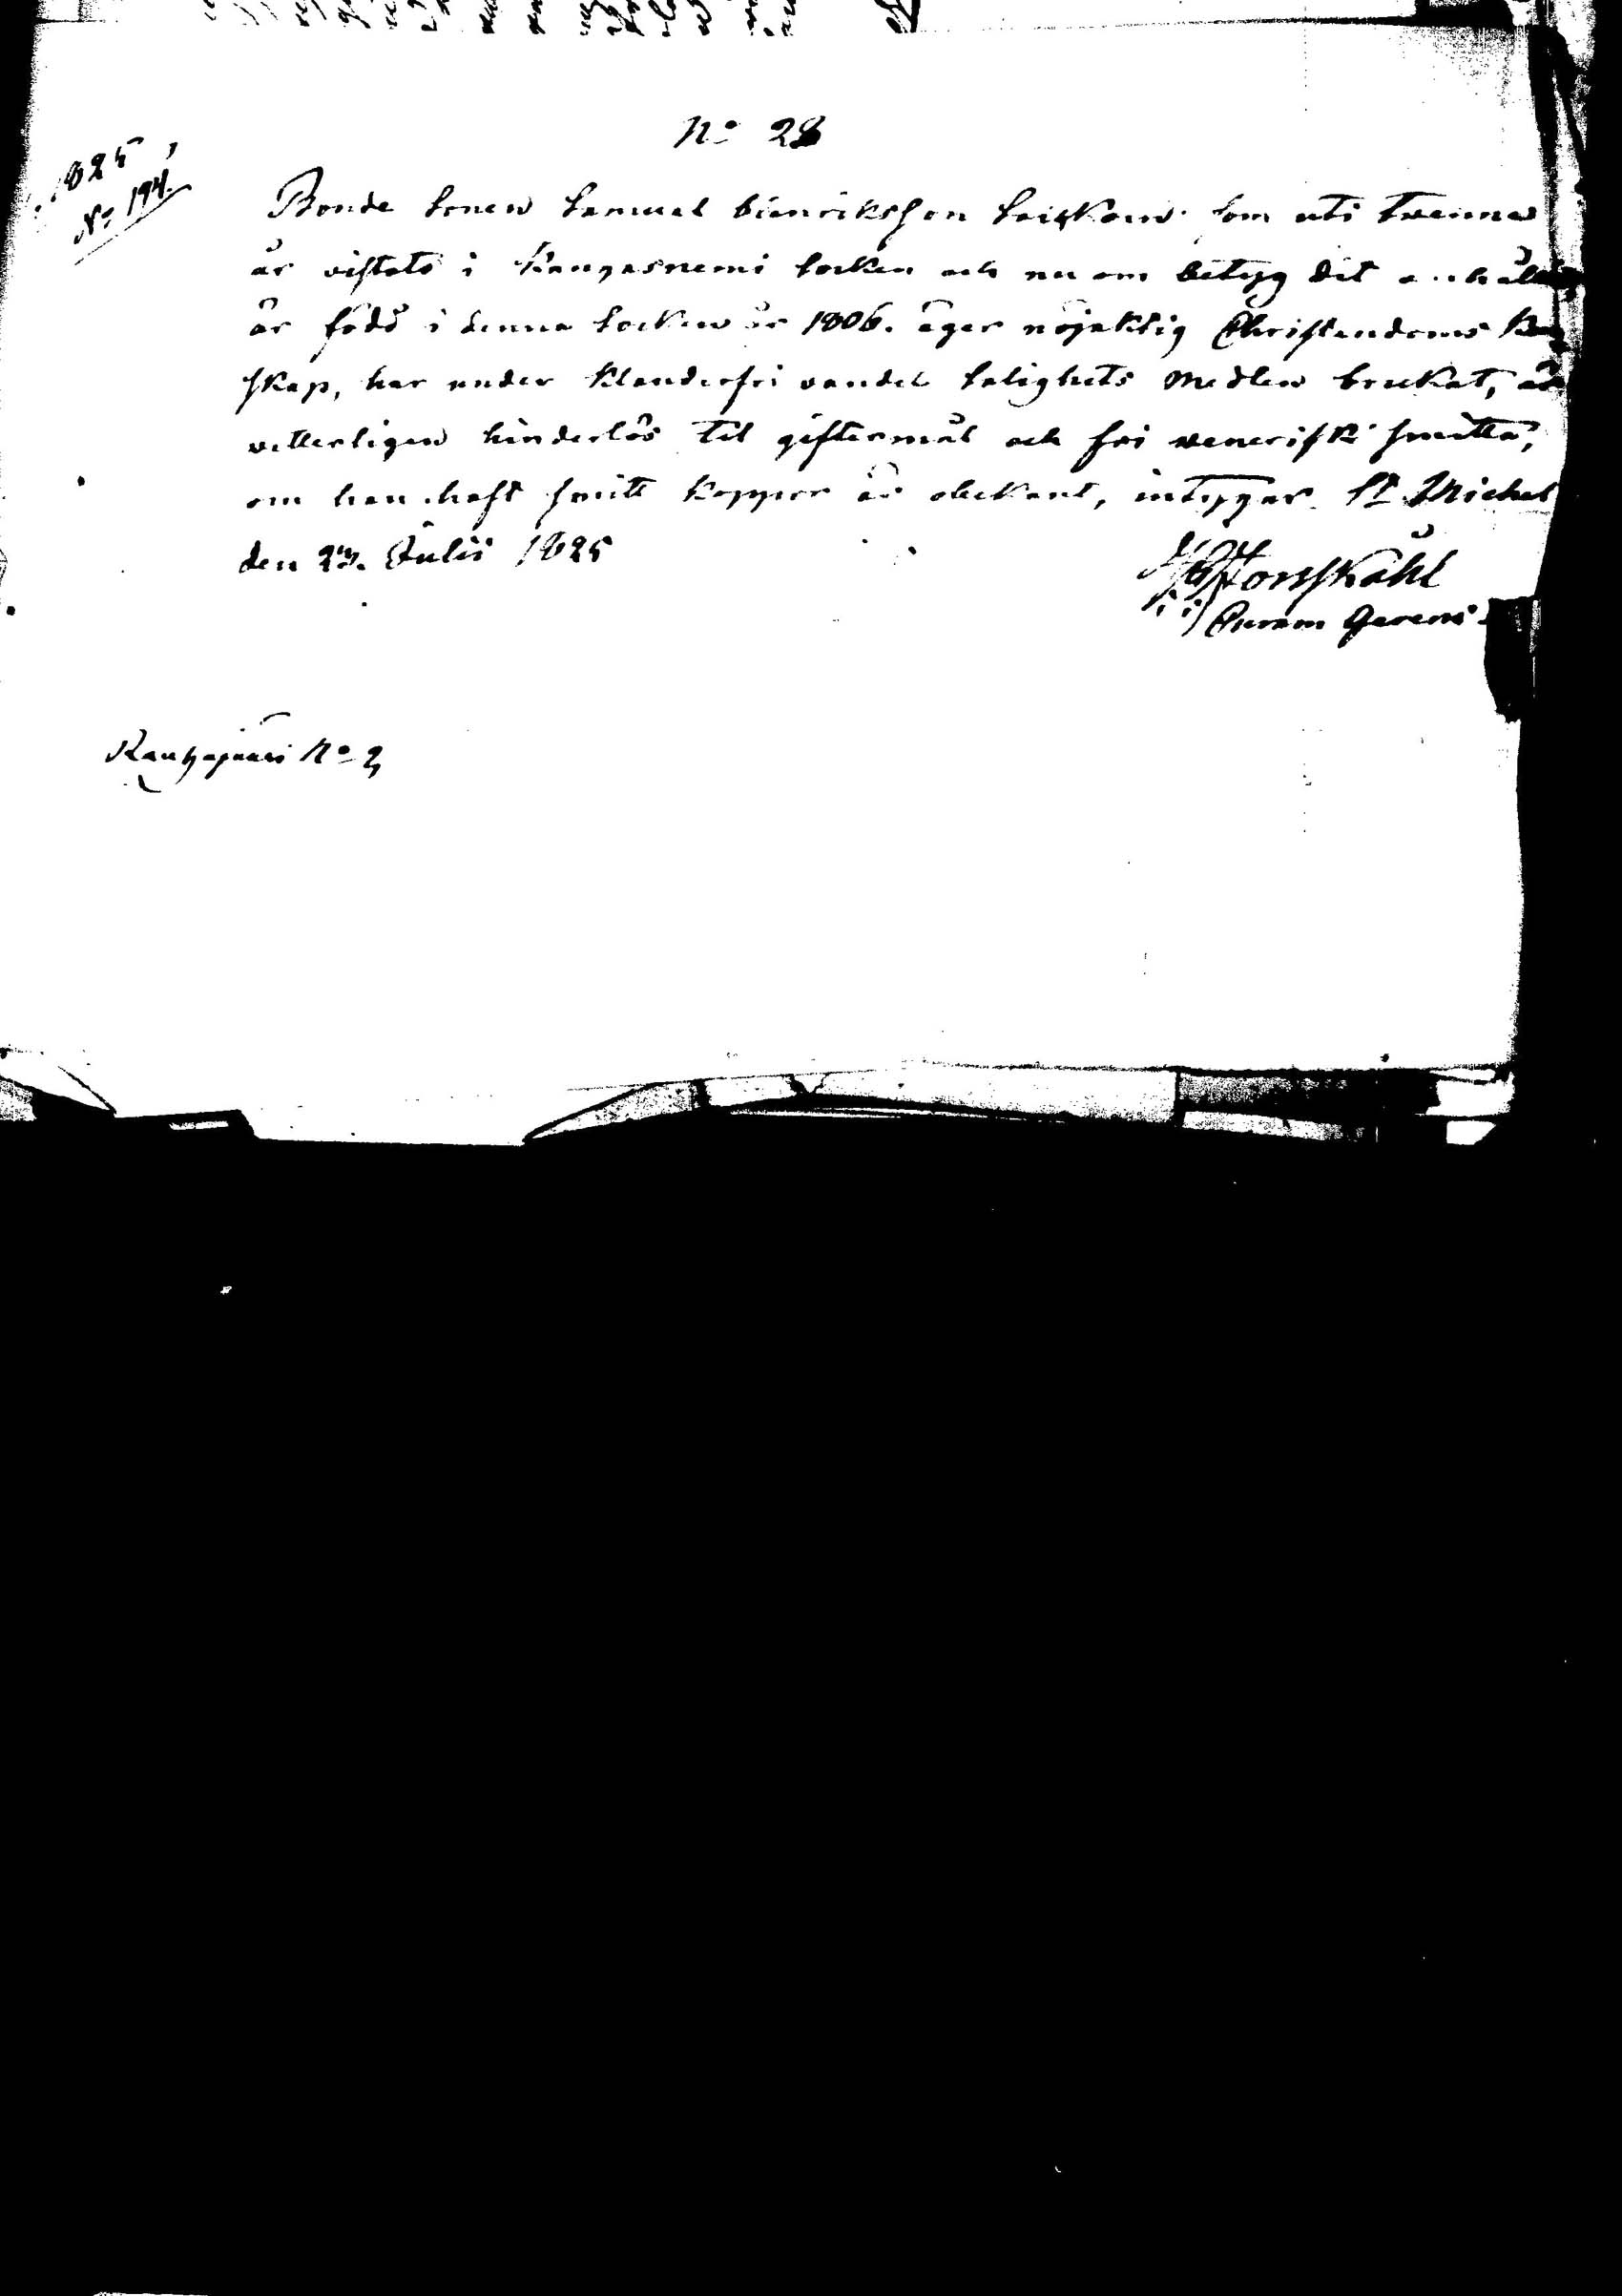 No 28
1825
No 194.
Bonde Sonen Samuel Henriksson som uti trenne
år vistats i Kangasniemi Socken och nu om betyg dit anhåller
är född i denna Socken år 1806. äger nöjaktig Christendoms
skap, har under klanderfri vandel Salighets Medlen brukat, är
vetterligen hinderlös til giftermål och fri venerisk smitta,
om han haft smitt koppor är obekant, intygar St Michel
den 23. Julii 1825
Forsskåhl
Curam Gerens
No 2